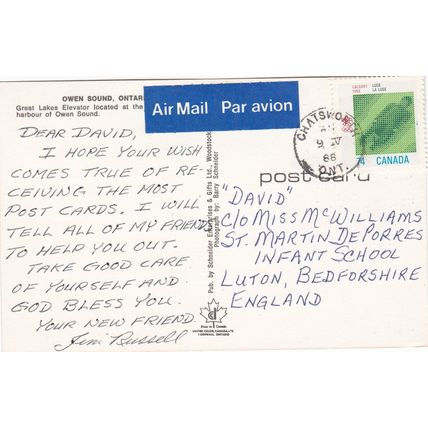 OWEN SOUND, ONTAR
Great Lakes Elevator located at the
harbour of Owen Sound.
Air Mail Par avion
CALGARY
1988
LUGE
LA LUGE
74 CANADA
CHATSWORTH
9 IV
88
ONT.
post card
DEAR DAVID,
I HOPE YOUR WISH
COMES TRUE OF RE-
CEIVING THE MOST
POST CARDS. I WILL
TELL ALL OF MY FRIEND
TO HELP YOU OUT.
TAKE GOOD CARE
OF YOURSELF AND
GOD BLESS YOU.
YOUR NEW FRIEND
Jim Russell
Pub. by Schneider Enterprises & Gifts Ltd., Woodstock
Photograph by: Barry Schneider
"DAVID"
c/o MISS McWILLIAMS
ST. MARTIN DePORRES
INFANT SCHOOL
LUTON, BEDFORSHIRE
ENGLAND
Made in Canada